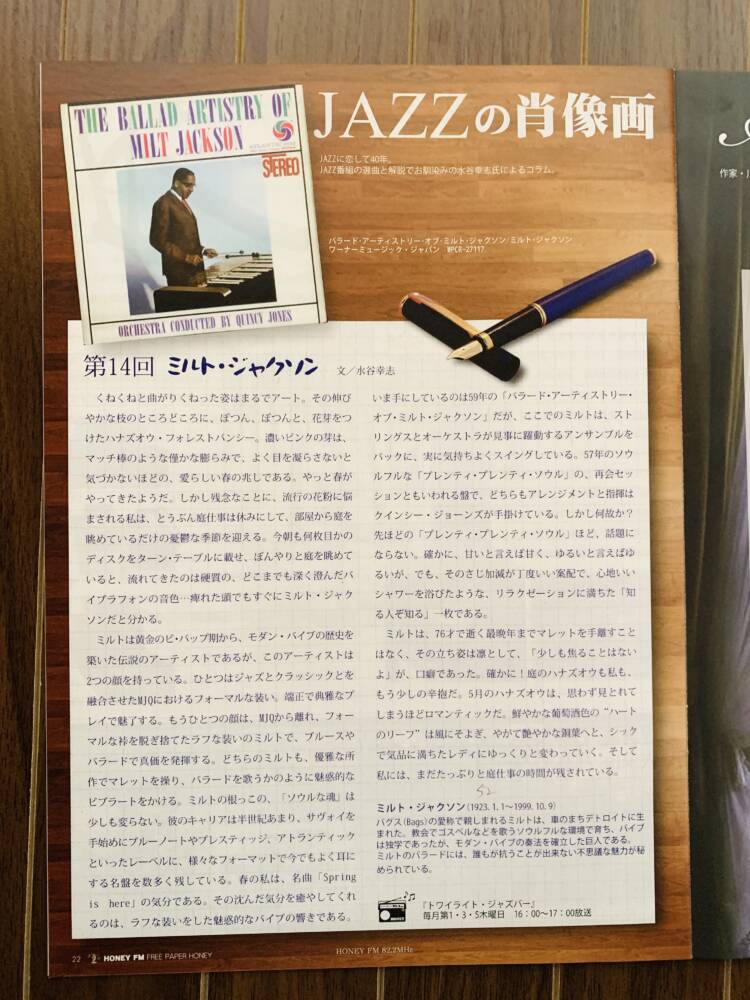 THE BALLAD ARTISTRY OF
MILT JACKSON
STEREO
ORCHESTRA CONDUCTED BY QUINCY JONES
JAZZの肖像画
JAZZに恋して40年。
JAZZ番組の選曲と解説でお馴染みの水谷幸志氏によるコラム。
バラード・アーティストリー・オブ・ミルト・ジャクソン/ミルト・ジャクソン
ワーナーミュージック・ジャパン WPCR-27117
作家・J
第14回 ミルト・ジャクソン 文/水谷幸志
くねくねと曲がりくねった姿はまるでアート。その伸び
やかな枝のところどころに、ぽつん、ぽつんと、花芽をつ
けたハナズオウ・フォレストパンシー。濃いピンクの芽は、
マッチ棒のような僅かな膨らみで、よく目を凝らさないと
気づかないほどの、愛らしい春の兆しである。やっと春が
やってきたようだ。しかし残念なことに、流行の花粉に悩
まされる私は、とうぶん庭仕事は休みにして、部屋から庭を
眺めているだけの憂鬱な季節を迎える。今朝も何枚目かの
ディスクをターン・テーブルに載せ、ぼんやりと庭を眺めて
いると、流れてきたのは硬質の、どこまでも深く澄んだバ
イブラフォンの音色…痺れた頭でもすぐにミルト・ジャク
ソンだと分かる。
ミルトは黄金のビ・バップ期から、モダン・バイブの歴史を
築いた伝説のアーティストであるが、このアーティストは
2つの顔を持っている。ひとつはジャズとクラッシックとを
融合させたMJQにおけるフォーマルな装い。端正で典雅なプ
レイで魅了する。もうひとつの顔は、MJQから離れ、フォー
マルな裃を脱ぎ捨てたラフな装いのミルトで、ブルースや
バラードで真価を発揮する。どちらのミルトも、優雅な所
作でマレットを操り、バラードを歌うかのように魅惑的な
ビブラートをかける。ミルトの根っこの、「ソウルな魂」は
少しも変らない。彼のキャリアは半世紀あまり、サヴォイを
手始めにブルーノートやプレスティッジ、アトランティック
といったレーベルに、様々なフォーマットで今でもよく耳に
する名盤を数多く残している。春の私は、名曲「Spring
is here」の気分である。その沈んだ気分を癒やしてくれ
るのは、ラフな装いをした魅惑的なバイブの響きである。
いま手にしているのは59年の「バラード・アーティストリー・
オブ・ミルト・ジャクソン」だが、ここでのミルトは、スト
リングスとオーケストラが見事に躍動するアンサンブルを
バックに、実に気持ちよくスイングしている。57年のソウ
ルフルな「プレンティ・プレンティ・ソウル」の、再会セッ
ションともいわれる盤で、どちらもアレンジメントと指揮は
クインシー・ジョーンズが手掛けている。しかし何故か?
先ほどの「プレンティ・プレンティ・ソウル」ほど、話題に
ならない。確かに、甘いと言えば甘く、ゆるいと言えばゆ
るいが、でも、そのさじ加減が丁度いい案配で、心地いい
シャワーを浴びたような、リラクゼーションに満ちた「知
る人ぞ知る」一枚である。
ミルトは、76才で逝く最晩年までマレットを手離すこと
はなく、その立ち姿は凛として、「少しも焦ることはない
よ」が、口癖であった。確かに!庭のハナズオウも私も、
もう少しの辛抱だ。5月のハナズオウは、思わず見とれて
しまうほどロマンティックだ。鮮やかな葡萄酒色の“ハート
のリーフ”は風にそよぎ、やがて艶やかな銅葉へと、シック
で気品に満ちたレディにゆっくりと変わっていく。そして
私には、まだたっぷりと庭仕事の時間が残されている。
52
ミルト・ジャクソン(1923.1.1〜1999.10.9)
バグス(Bags)の愛称で親しまれるミルトは、車のまちデトロイトに生
まれた。教会でゴスペルなどを歌うソウルフルな環境で育ち、バイブ
は独学であったが、モダン・バイブの奏法を確立した巨人である。
ミルトのバラードには、誰もが抗うことが出来ない不思議な魅力が秘
められている。
『トワイライト・ジャズバー』
毎月第1・3・5木曜日 16:00〜17:00放送
22 HONEY FM FREE PAPER HONEY
HONEY FM 82.2MHz